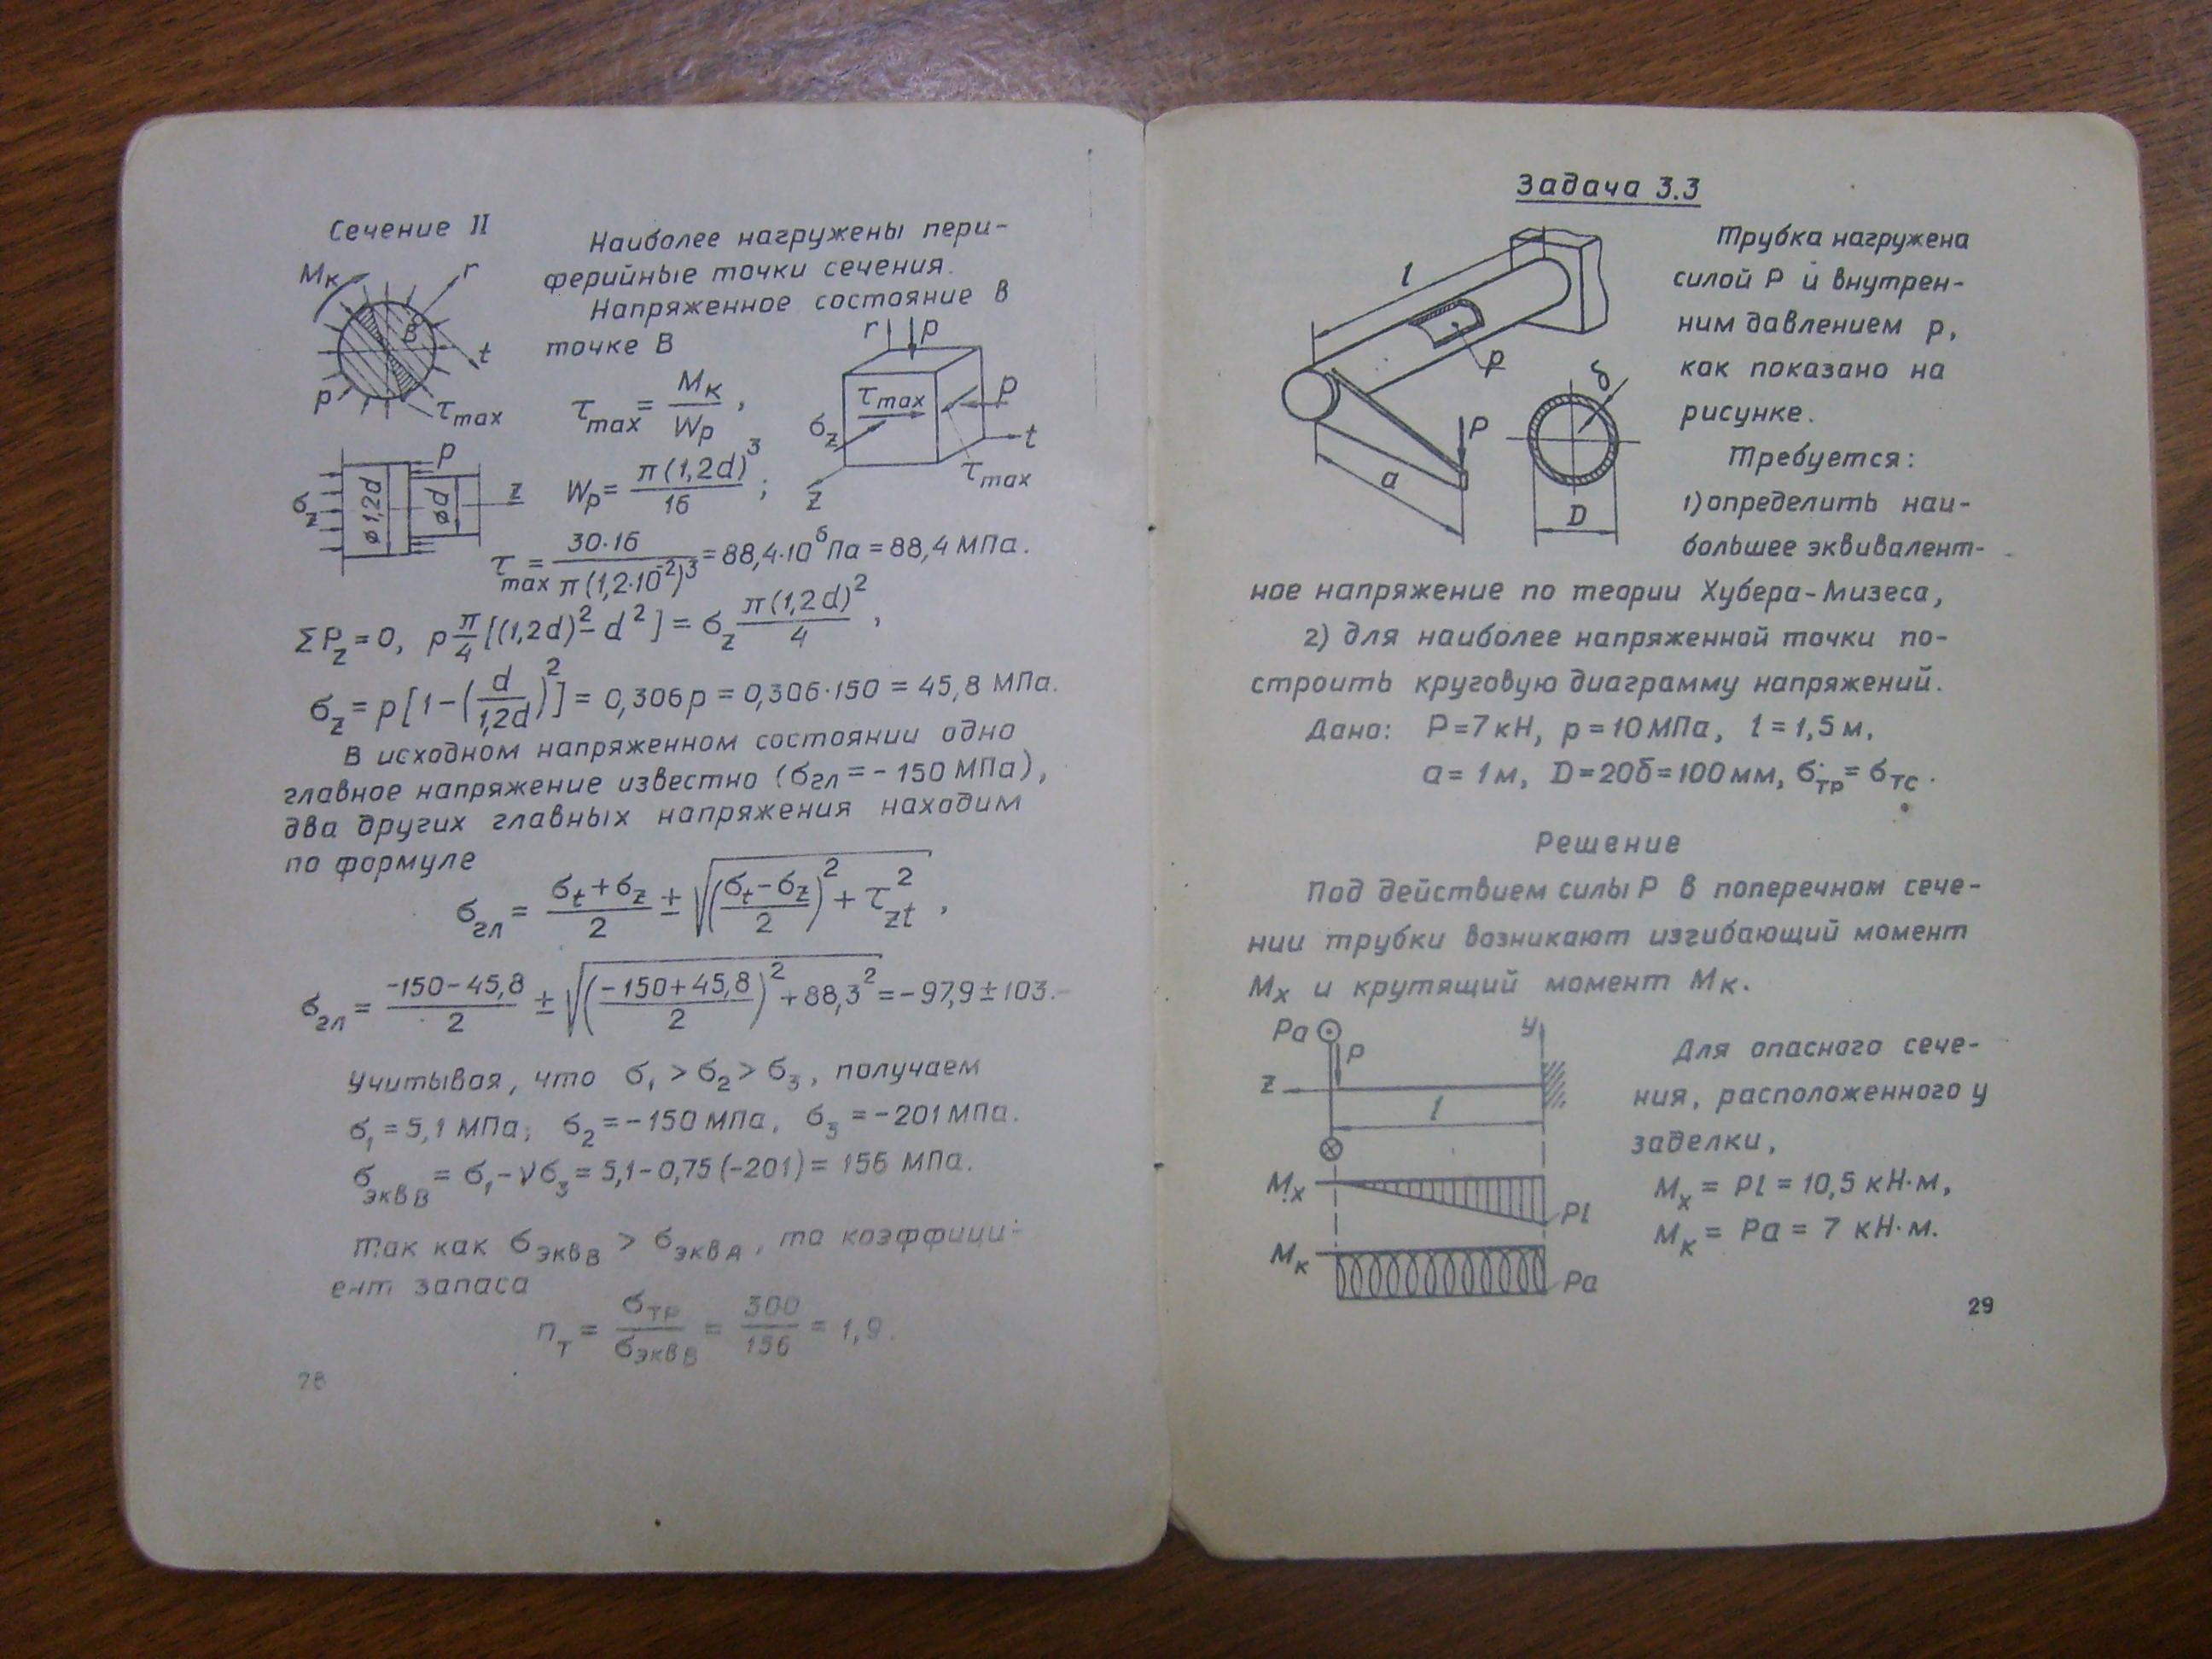 Сечение II
Наиболее нагружены пери-
ферийные точки сечения.
Напряженное состояние в
точке В
Mк
r
B
t
p
τmax
τmax = Mк / Wp ,
r
p
τmax
p
σz
t
τmax
z
p
σz
ø1,2d
ød
z
Wp = π(1,2d)³ / 16 ;
τmax = 30·16 / π(1,2·10⁻²)³ = 88,4·10⁶ Па = 88,4 МПа.
ΣPz = 0, p π/4 [(1,2d)² − d²] = σz π(1,2d)² / 4 ,
σz = p[1 − (d / 1,2d)²] = 0,306p = 0,306·150 = 45,8 МПа.
В исходном напряженном состоянии одно
главное напряжение известно (σгл = − 150 МПа),
два других главных напряжения находим
по формуле
σгл = (σt + σz) / 2 ± √(((σt − σz) / 2)² + τzt²) ,
σгл = (−150 − 45,8) / 2 ± √(((−150 + 45,8) / 2)² + 88,3²) = −97,9 ± 103.
Учитывая, что σ₁ > σ₂ > σ₃, получаем
σ₁ = 5,1 МПа; σ₂ = − 150 МПа, σ₃ = − 201 МПа.
σэквВ = σ₁ − νσ₃ = 5,1 − 0,75(−201) = 156 МПа.
Так как σэквВ > σэквА, то коэффици-
ент запаса
nт = σтр / σэквВ = 300 / 156 = 1,9.
28
Задача 3.3
l
p
δ
P
a
D
Трубка нагружена
силой P и внутрен-
ним давлением p,
как показано на
рисунке.
Требуется:
1) определить наи-
большее эквивалент-
ное напряжение по теории Хубера-Мизеса,
2) для наиболее напряженной точки по-
строить круговую диаграмму напряжений.
Дано: P = 7 кН, p = 10 МПа, l = 1,5 м,
a = 1 м, D = 20δ = 100 мм, σтр = σтс.
Решение
Под действием силы P в поперечном сече-
нии трубки возникают изгибающий момент
Mx и крутящий момент Mк.
Pa
P
y
z
l
Mx
Pl
Mк
Pa
Для опасного сече-
ния, расположенного у
заделки,
Mx = Pl = 10,5 кН·м,
Mк = Pa = 7 кН·м.
29